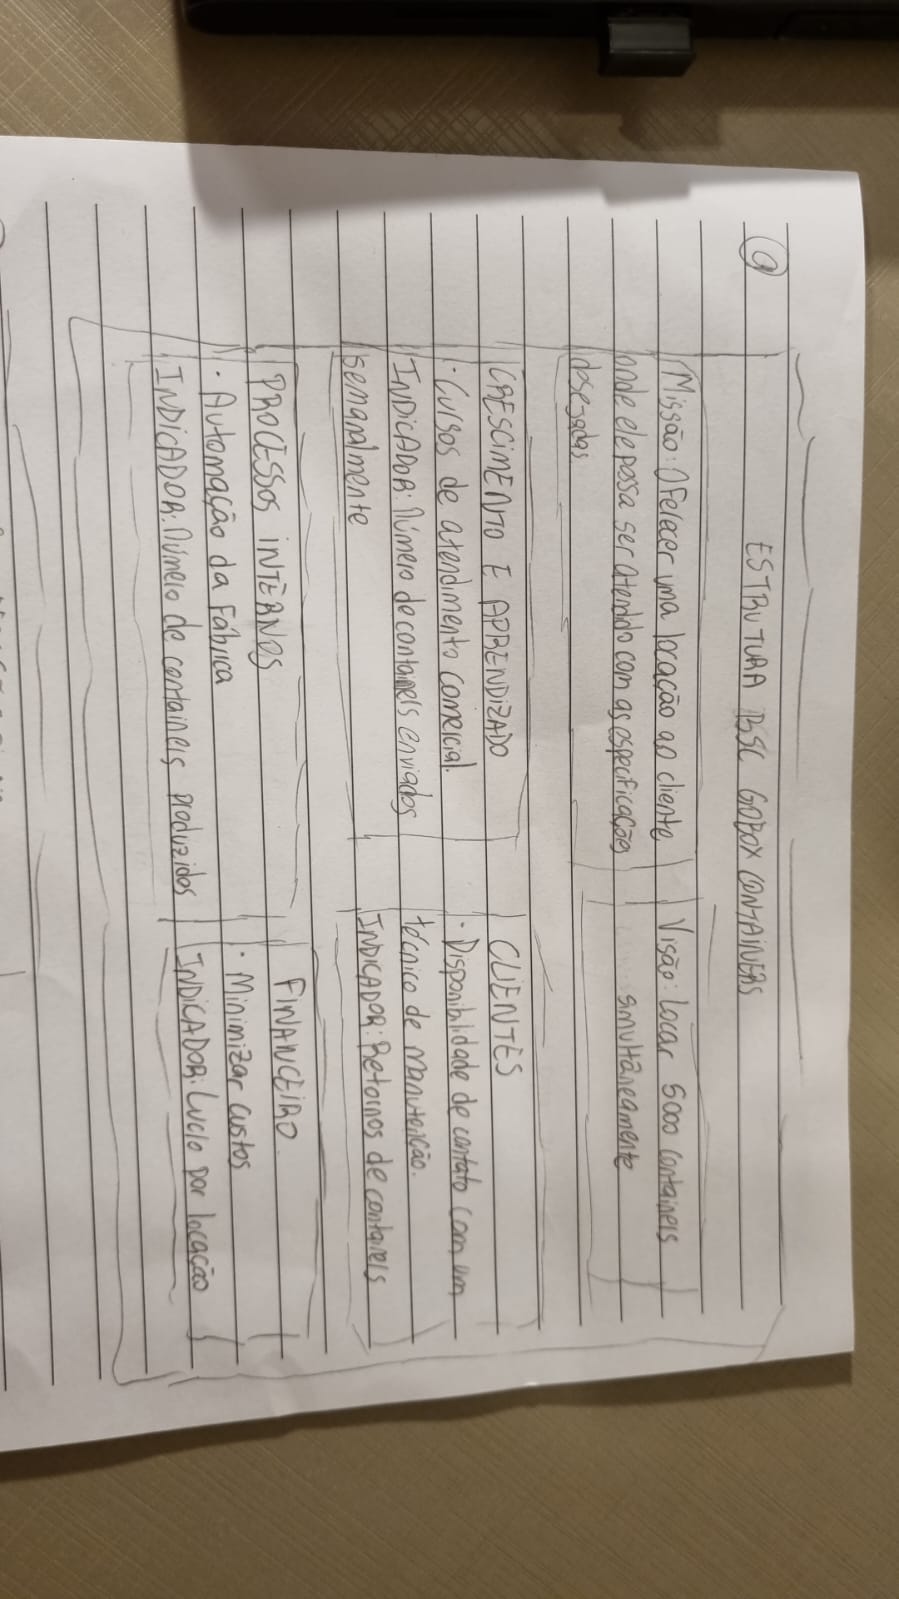 a
ESTRUTURA BSC GOBOX CONTAINERS
Missão: Oferecer uma locação ao cliente
onde ele possa ser atendido com as especificações
desejadas
Visão: Locar 5000 containers
simultâneamente
CRESCIMENTO E APRENDIZADO
· Cursos de atendimento comercial.
INDICADOR: Número de containers enviados
semanalmente
CLIENTES
· Disponibilidade de contato com um
técnico de manutenção.
INDICADOR: Retornos de containers
PROCESSOS INTERNOS
· Automação da Fábrica
INDICADOR: Número de containers produzidos
FINANCEIRO
· Minimizar custos
INDICADOR: Lucro por locação